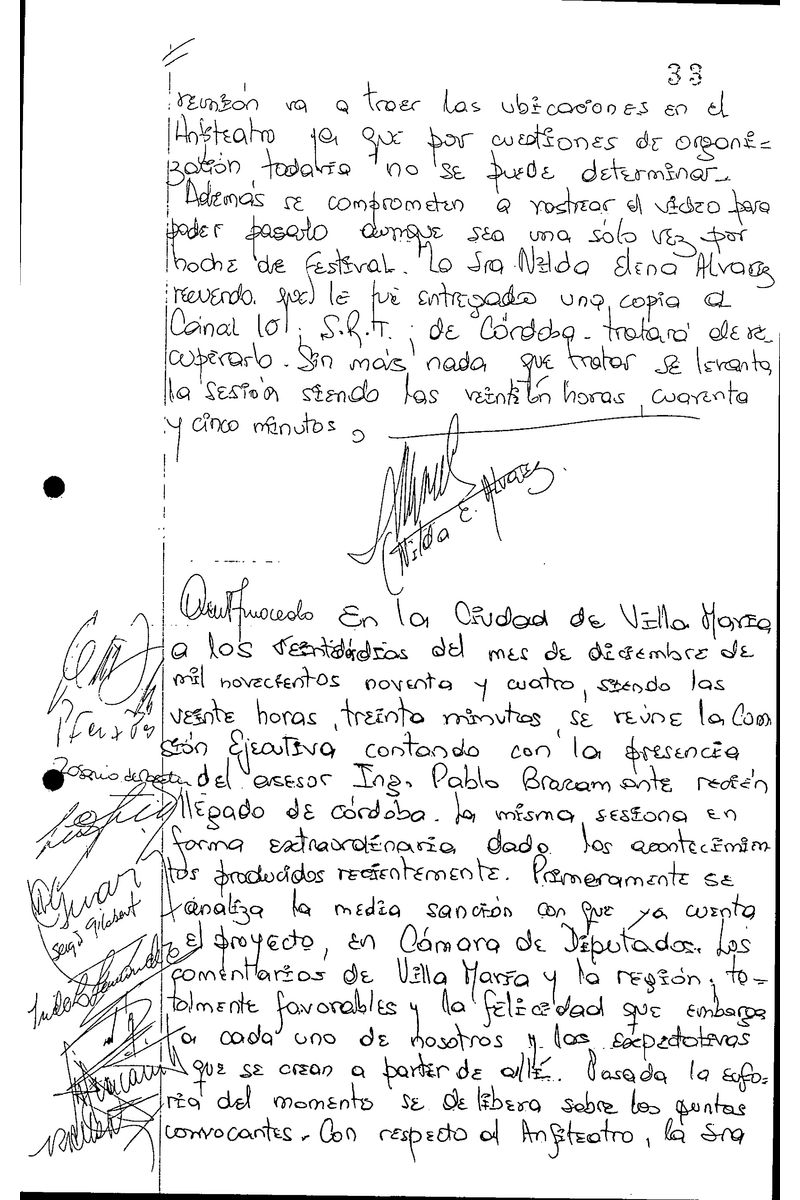 33
reunión va a traer las ubicaciones en el
Anfiteatro ya que por cuestiones de organi=
zación todavía no se puede determinar.-
Además se comprometen a rastrear el video para
poder pasarlo aunque sea una sólo vez por
noche de festival. La Sra Nilda Elena Alvarez
recuerda que le fue entregada una copia a
Canal 10, S.R.T., de Córdoba - tratará de re
cuperarlo. Sin más nada que tratar se levanta
la sesión siendo las veintiún horas, cuarenta
y cinco minutos
Nilda E. Alvarez.
En la Ciudad de Villa María
a los veintidós días del mes de diciembre de
mil novecientos noventa y cuatro, siendo las
veinte horas, treinta minutos se reúne la Comi
sión Ejecutiva contando con la presencia
del asesor Ing. Pablo Bracamonte recién
llegado de Córdoba. La misma sesiona en
forma extraordinaria dado los acontecimien
tos producidos recientemente. Primeramente se
analiza la media sanción con que ya cuenta
el proyecto, en Cámara de Diputados. Los
comentarios de Villa María y la región, to=
talmente favorables y la felicidad que embarga
a cada uno de nosotros y las expectativas
que se crean a partir de allí. Pasada la eufo=
ria del momento se delibera sobre los puntos
convocantes. Con respecto al Anfiteatro, la Sra
Sergio Gilabert